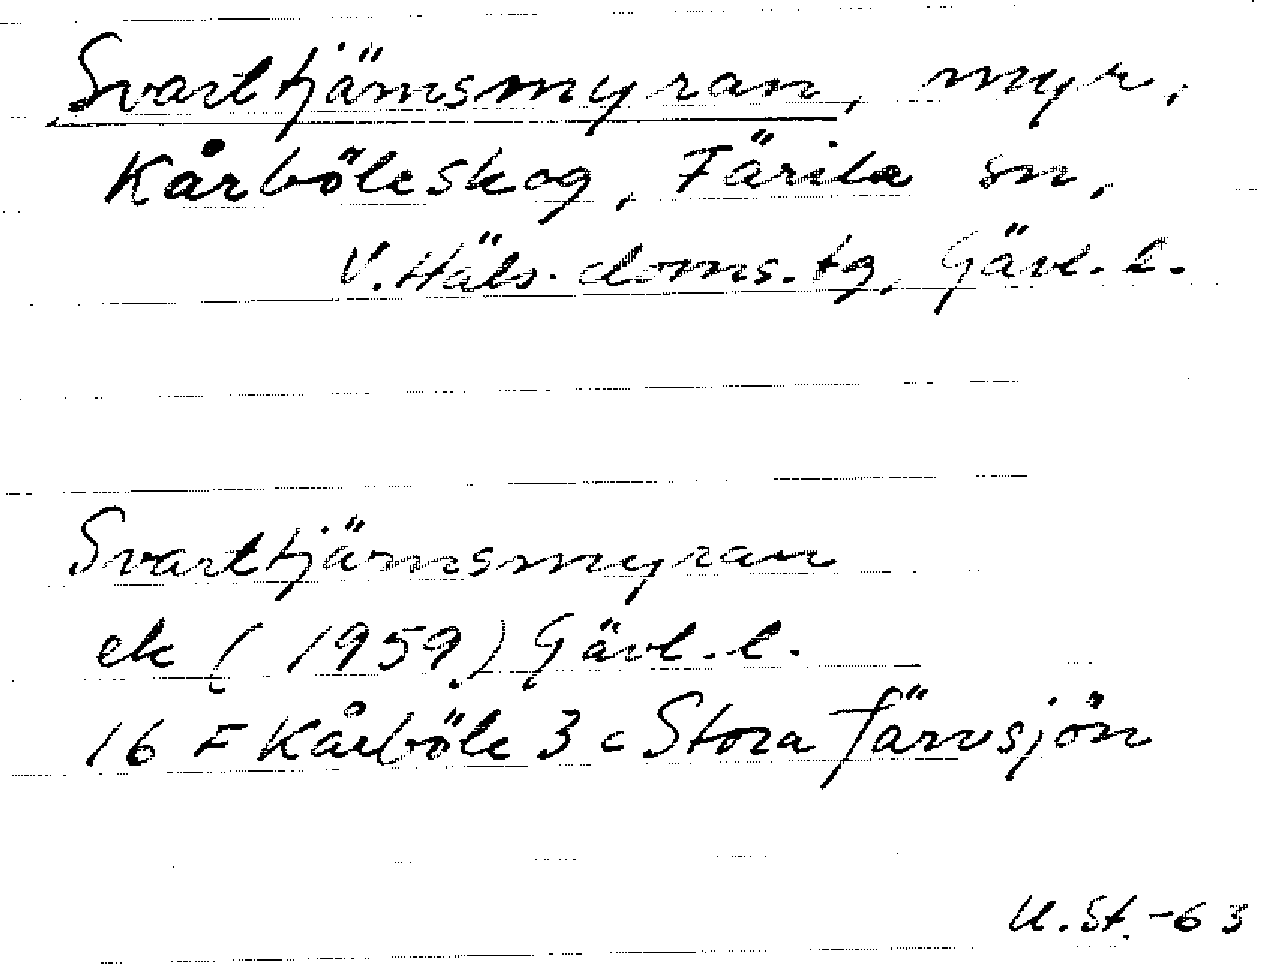 Svarttjärnsmyran, myr,
Kårböleskog, Färila sn,
V. Häls. doms. tg, Gävl. l.
Svarttjärnsmyran
ek (1959) Gävl. l.
16 F Kårböle 3 c Stora Järvsjön
U. St. -63